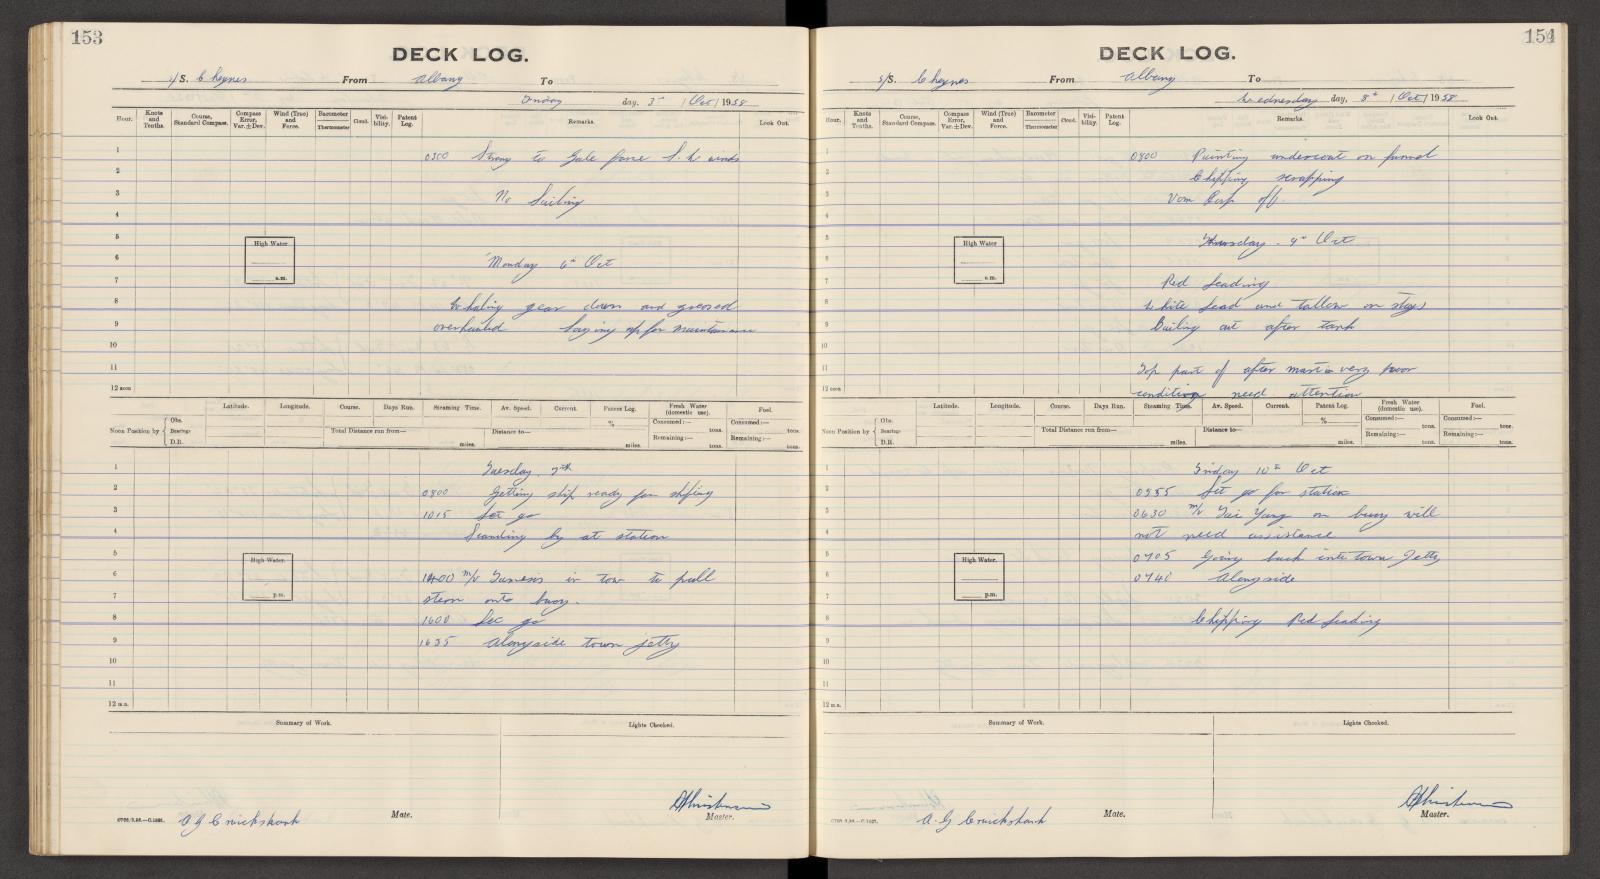 153
DECK LOG.
S/S. Cheynes From Albany To
day, 3 / Oct / 1958
Hour.
Knots and Tenths.
Course, Standard Compass.
Compass Error, Var. ± Dev.
Wind (True) and Force.
Barometer
Thermometer
Cloud.
Visibility.
Patent Log.
Remarks.
Look Out.
1
2
3
4
5
6
7
8
9
10
11
12 noon
Strong to Gale force S.W winds
No Sailing
High Water
a.m.
Monday 6th Oct
Whaling gear down and greased
overhauled Laying up for maintenance
Latitude. Longitude. Course. Days Run. Steaming Time. Av. Speed. Current. Patent Log. Fresh Water (domestic use). Fuel.
Noon Position by { Obs. Bearing: D.R.
Total Distance run from— miles.
Distance to— miles.
%
Consumed:— tons.
Remaining:— tons.
Consumed:— tons.
Remaining:— tons.
1
2
3
4
5
6
7
8
9
10
11
12 m.n.
Tuesday 7th
0800 Getting ship ready for shifting
1015 Let go
Standing by at station
High Water.
p.m.
1400 m/v in tow to pull
stern onto buoy.
1600 Let go
1635 Alongside town jetty
Summary of Work.
Lights Checked.
A G Cruickshank
Mate.
Master.
154
DECK LOG.
S/S. Cheynes From Albany To
Wednesday day, 8th / Oct / 1958
Hour.
Knots and Tenths.
Course, Standard Compass.
Compass Error, Var. ± Dev.
Wind (True) and Force.
Barometer
Thermometer
Cloud.
Visibility.
Patent Log.
Remarks.
Look Out.
1
2
3
4
5
6
7
8
9
10
11
12 noon
0800 Painting undercoat on funnel
Chipping scrapping
off.
High Water
a.m.
Thursday. 9th Oct
Red Leading
White lead and tallow on stays
Bailing out after tank
Top part of after mast is very poor
condition need attention
Latitude. Longitude. Course. Days Run. Steaming Time. Av. Speed. Current. Patent Log. Fresh Water (domestic use). Fuel.
Noon Position by { Obs. Bearing: D.R.
Total Distance run from— miles.
Distance to— miles.
%
Consumed:— tons.
Remaining:— tons.
Consumed:— tons.
Remaining:— tons.
1
2
3
4
5
6
7
8
9
10
11
12 m.n.
Friday 10th Oct
0555 Let go for station
0630 m/v Yang on buoy will
not need assistance
0705 Going back into town Jetty
0740 Alongside
High Water.
p.m.
Chipping Red Leading
Summary of Work.
Lights Checked.
A. G Cruickshank
Mate.
Master.